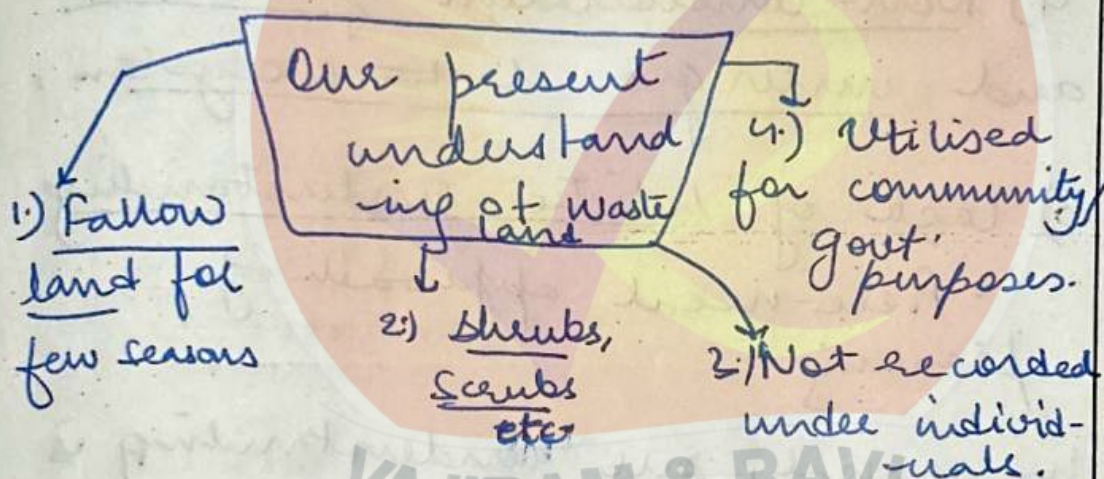 Our present
understand
-ing of waste
land
1.) Fallow
land for
few seasons
2.) Shrubs,
Scrubs
etc
3.) Not recorded
under individ-
-uals.
4.) Utilised
for community/
govt.
purposes.
& RAVI